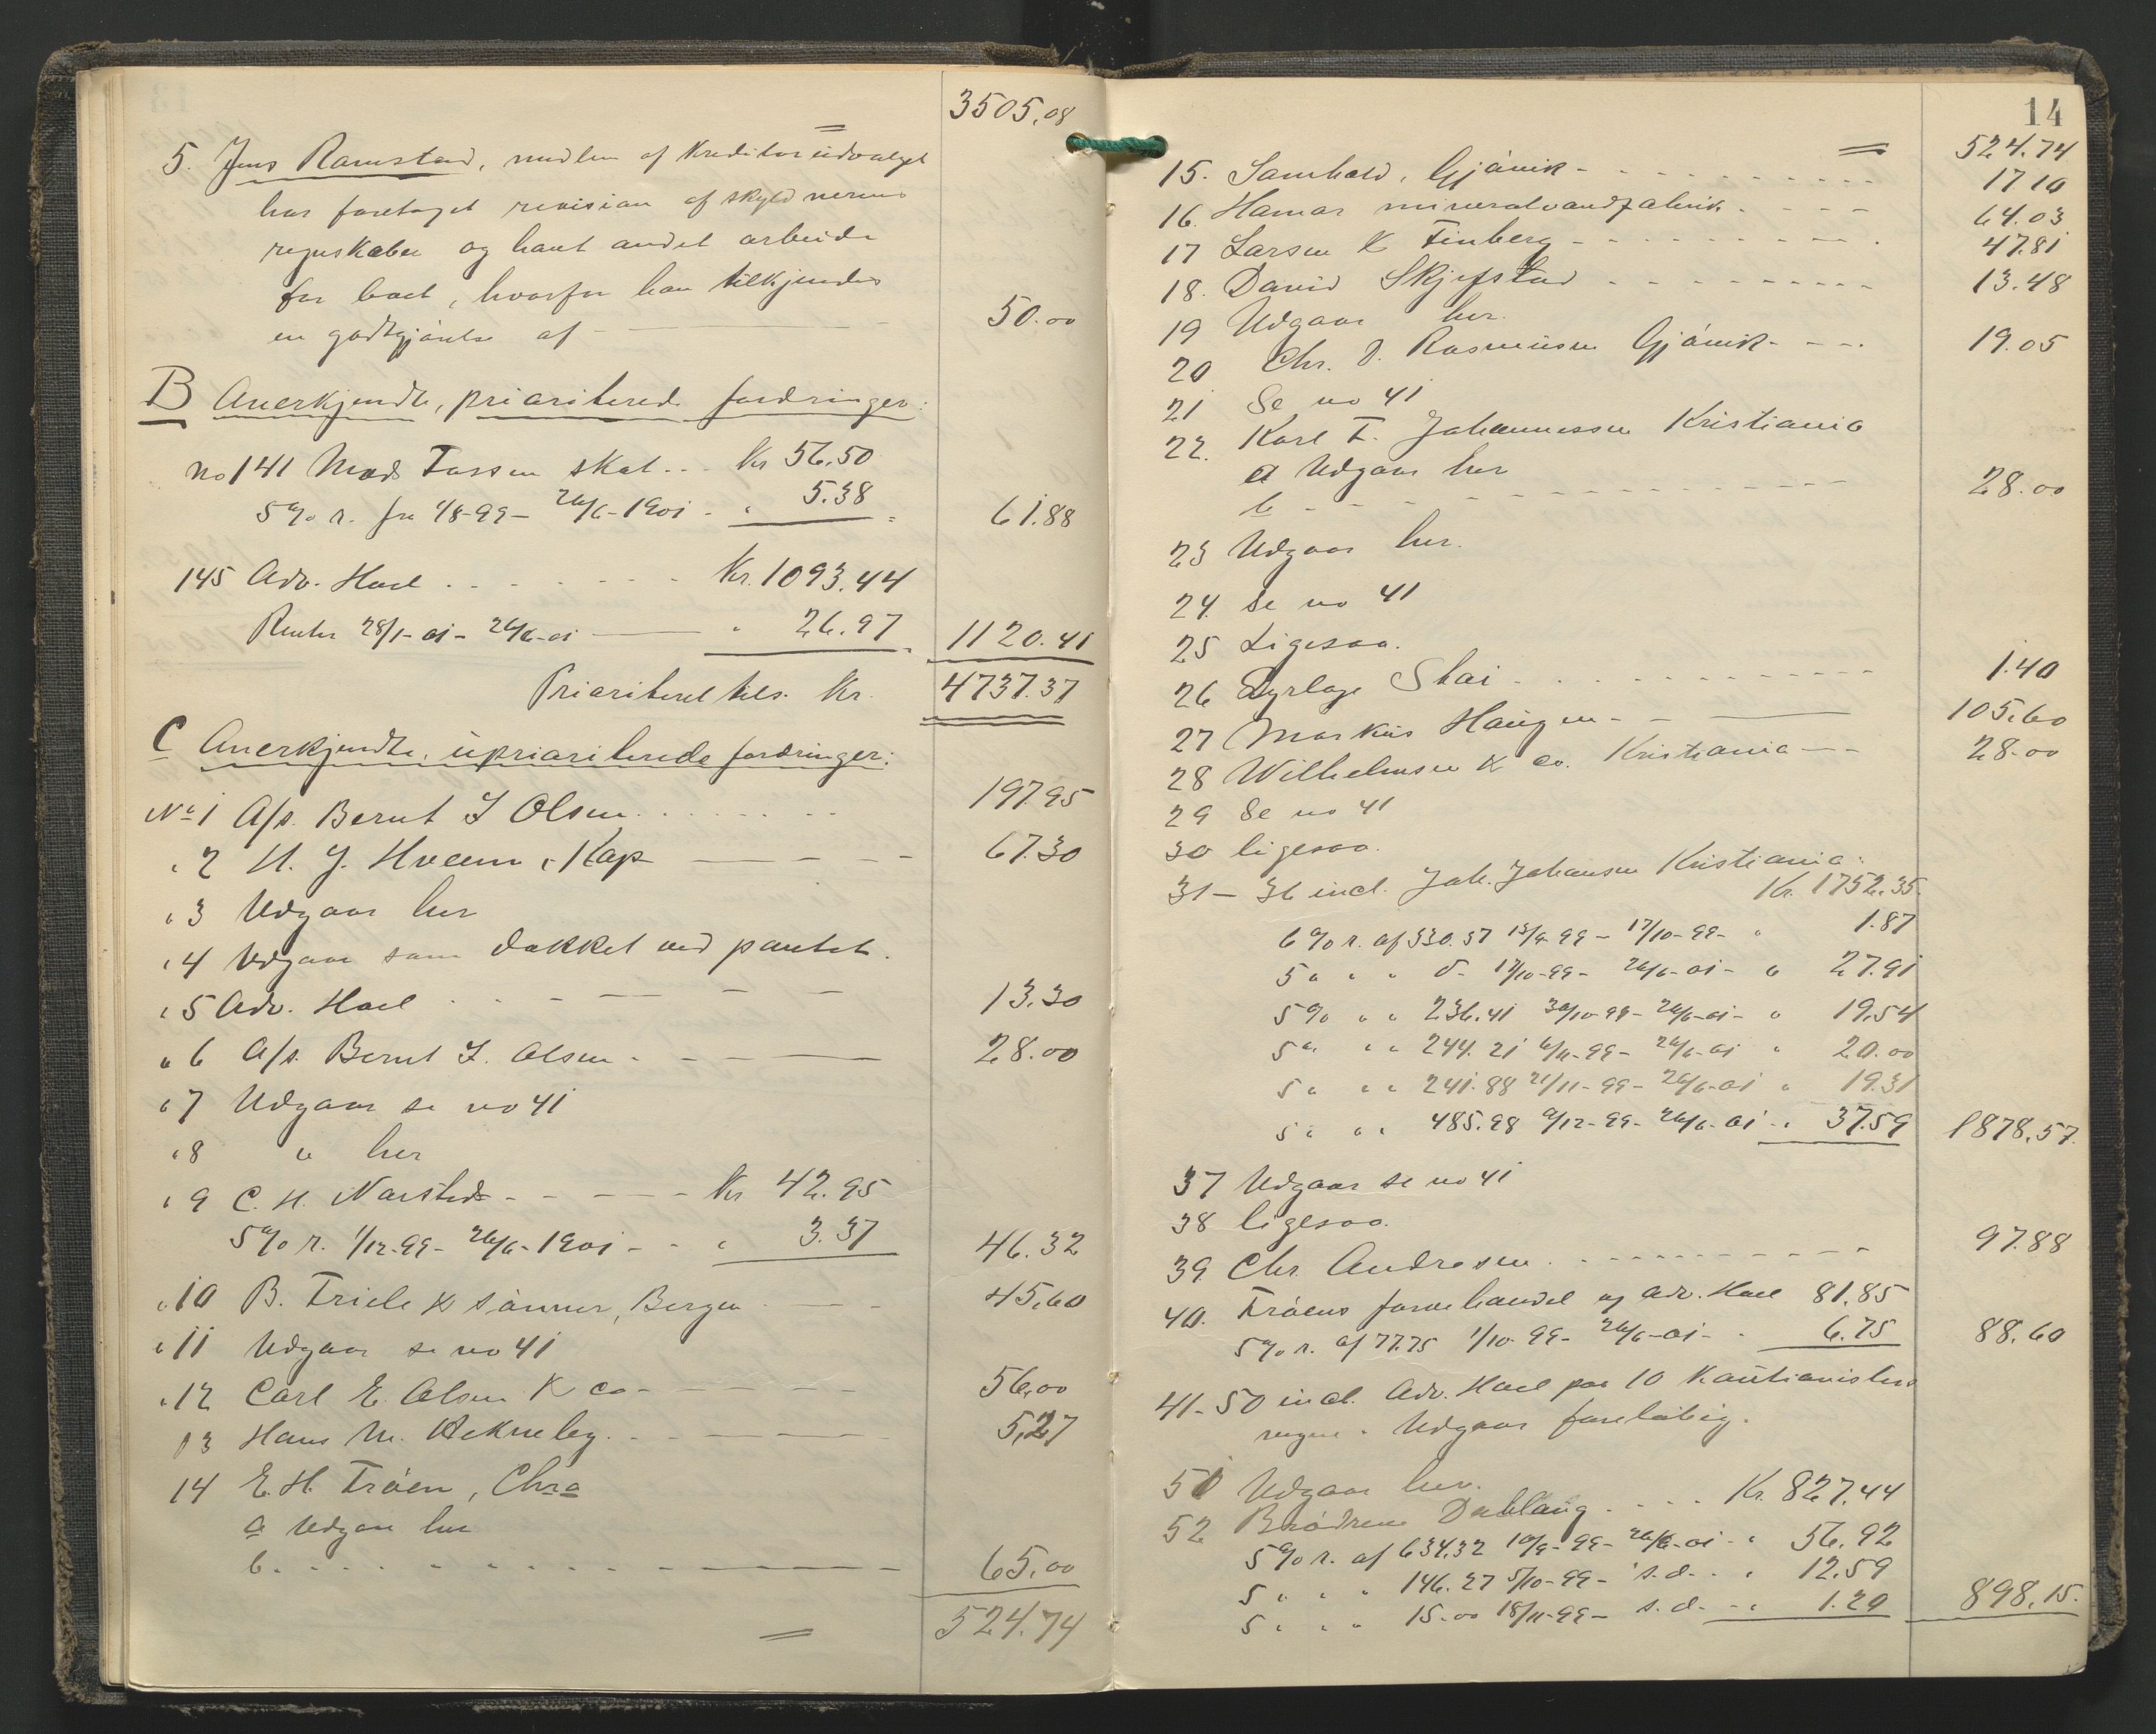 3505,08
5. Jens Ramstad, medlem af kreditorudvalget
har foretaget revision af skyldnerens
regnskaber og havt andet arbeide
for boet, hvorfor han tilkjendes
en godtgjørelse af 50.00
B Anerkjendte, prioriterede fordringer:
No 141 Mads Fossen skat... Kr 56,50
5% r. fra 1/8-99 - 26/6-1901 - " 5.38 61.88
145 Adv. Hoel Kr. 1093.44
Renter 28/1-01 - 26/6-01 " 26.97 1120.41
Prioriteret tils. Kr. 4737.37
C Anerkjendte, uprioriterede fordringer:
No 1 A/s. Bernt I Olsen 197.95
" 2 H. J. Hveem, Kap 67.30
" 3 Udgaar her
" 4 Udgaar som dækket ved pantet.
" 5 Adv. Hoel 13.30
" 6 A/s. Bernt I. Olsen 28.00
" 7 Udgaar se no 41
" 8 " her
" 9 C. H. Narsted Kr 42.95
5% r. 1/12-99 - 26/6-1901 - " 3.37 46.32
" 10 B. Friele & sønner, Bergen 45,60
" 11 Udgaar se no 41
" 12 Carl E. Olsen & co 56,00
13 Hans M. 5,27
14 E. H. Trøen, Chra
a Udgaar her
b 65,00
524.74
14
524.74
15. Samhold, Gjøvik 17 10
16 Hamar mineralvandfabrik 64.03
17 Larsen & Finberg 47.81
18. David Skjefstad 13.48
19 Udgaar her.
20 Chr. D. Rasmussen Gjøvik 19.05
21 Se no 41
22. Karl F. Johannessen Kristiania
a Udgaar her
b 28.00
23 Udgaar her.
24. Se no 41
25 Ligesaa.
26 Stai 1.40
27 Markus Haugen 105,60
28 Wilhelmsen & co. Kristiania 28.00
29 Se no 41
30 ligesaa.
31 - 36 incl. Joh. Johansen Kristiania.
Kr. 1752.35.
6% r. af 330.57 13/9-99 - 17/10-99 - " 1.87
5 " " " d- 17/10-99 - 26/6-01 - " 27.91
5% " " 236.41 30/10-99 - 26/6-01 - " 19.54
5 " " " 244.21 6/11-99 - 26/6-01 " 20.00
5 " " " 241.88 21/11-99 - 26/6-01 " 19.31
5 " " " 485.98 9/12-99 - 26/6-01 - " 37.59 1878,57.
37 Udgaar se no 41
38 ligesaa.
39 Chr. Andresen 97.88
40. Trøens farvehandel og Adv. Hoel 81.85
5% r. af 77.75 1/10-99 - 26/6-01 - " 6.75 88.60
41-50 incl. Adv. Hoel paa 10 kautionisters
vegne. Udgaar foreløbig.
51 Udgaar her.
52 Brødrene Dæhlaug Kr. 827.44
5% r. af 634.32 10/9-99 - 26/6-01 - " 56.92
5 " " " 146.27 5/10-99 - s.d. - " 12.59
5 " " " 15.00 18/11-99 - s.d. - " 1.20 898,15.